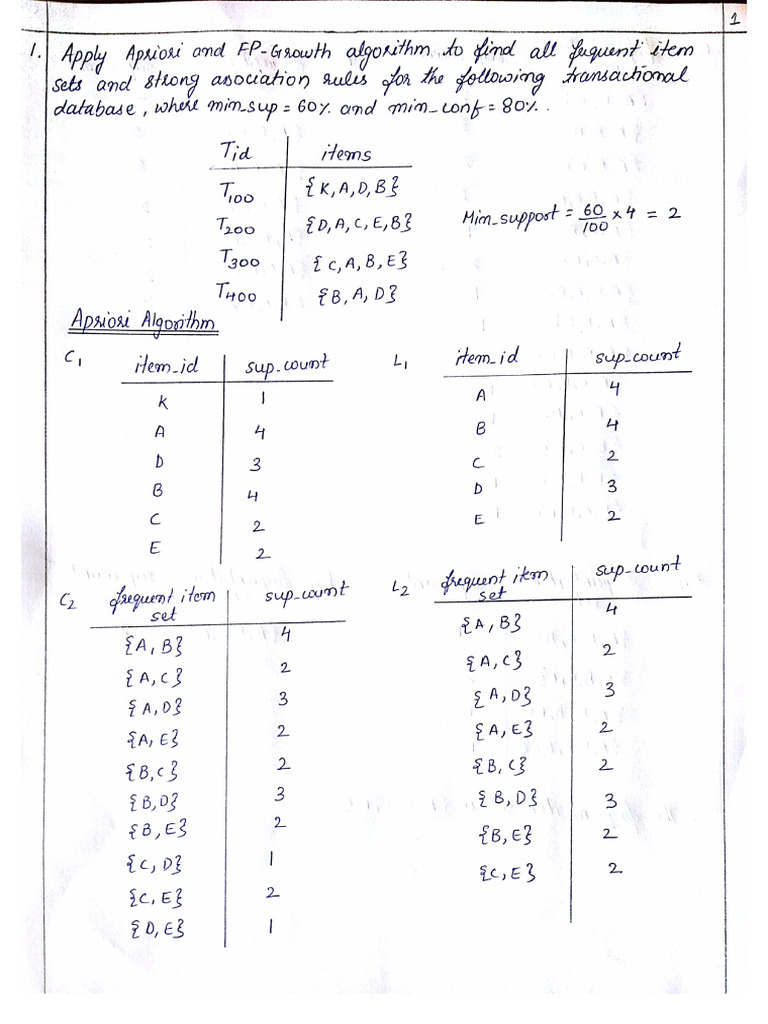 1
1. Apply Apriori and FP-Growth algorithm to find all frequent item
sets and strong association rules for the following transactional
database, where min_sup = 60% and min_conf = 80%.
Tid items
T100 {K, A, D, B}
T200 {D, A, C, E, B}
T300 {C, A, B, E}
T400 {B, A, D}
Min_support = 60/100 x 4 = 2
Apriori Algorithm
C1 item_id sup_count
K 1
A 4
D 3
B 4
C 2
E 2
L1 item_id sup_count
A 4
B 4
C 2
D 3
E 2
C2 frequent item set sup_count
{A, B} 4
{A, C} 2
{A, D} 3
{A, E} 2
{B, C} 2
{B, D} 3
{B, E} 2
{C, D} 1
{C, E} 2
{D, E} 1
L2 frequent item set sup_count
{A, B} 4
{A, C} 2
{A, D} 3
{A, E} 2
{B, C} 2
{B, D} 3
{B, E} 2
{C, E} 2